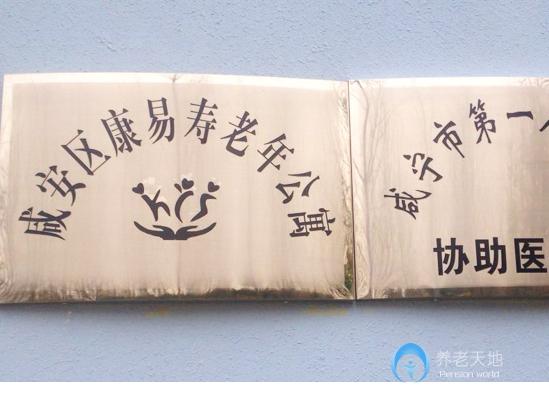 咸安区康易寿老年公寓
咸宁市第一
协助医
养老天地
Pension world